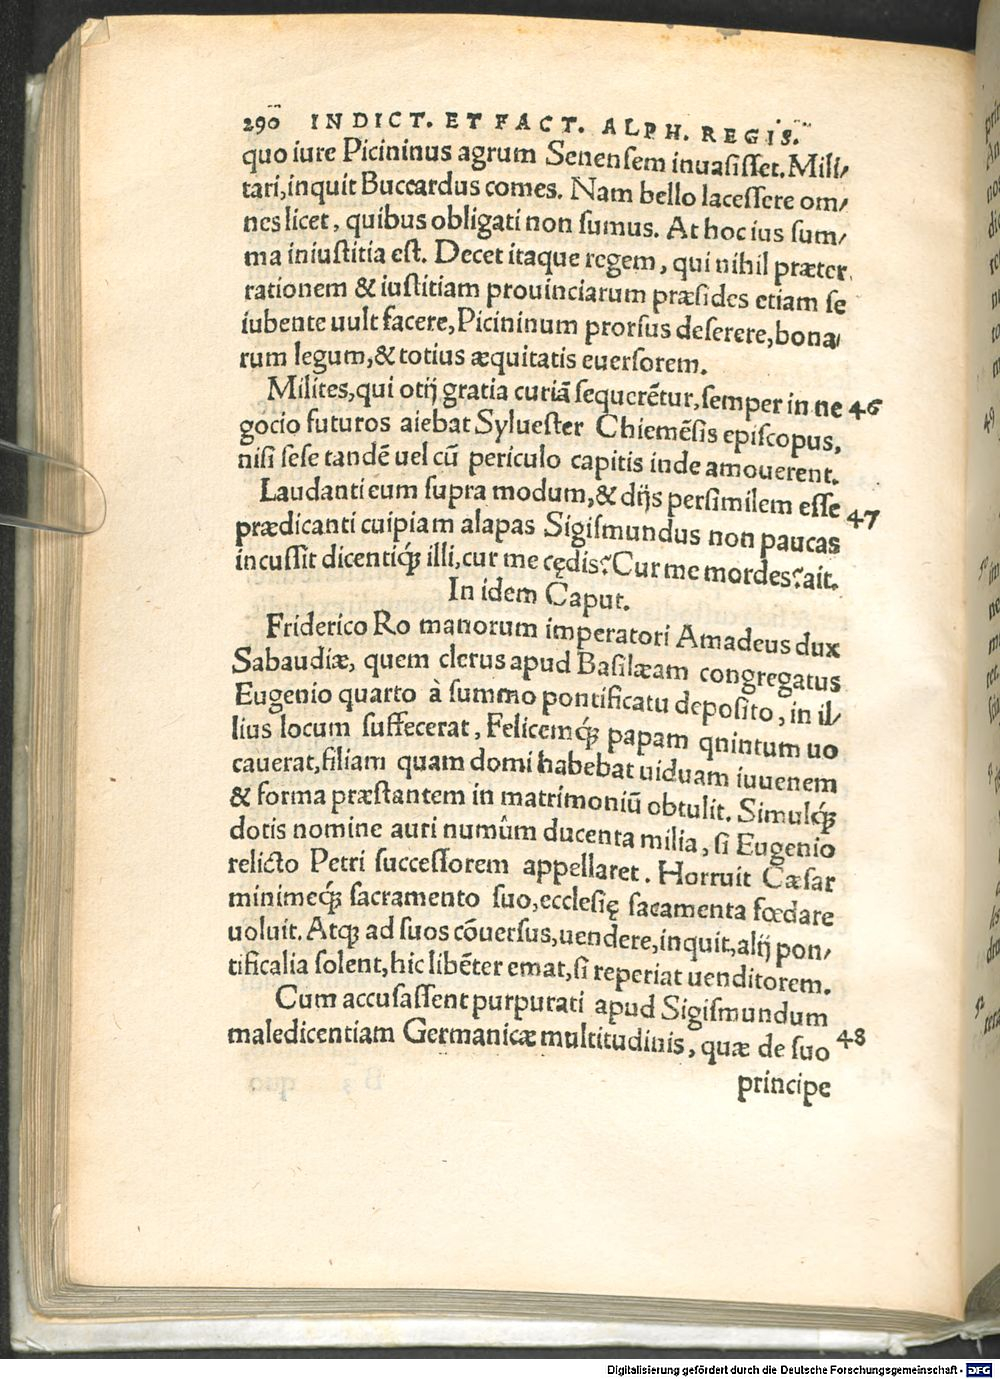 290 IN DICT. ET FACT. ALPH. REGIS.
quo iure Picininus agrum Senenſem inuaſiſſet. Mili/
tari, inquit Buccardus comes. Nam bello laceſſere om/
nes licet, quibus obligati non ſumus. At hoc ius ſum/
ma iniuſtitia eſt. Decet itaque regem, qui nihil præter
rationem & iuſtitiam prouinciarum præſides etiam ſe
iubente uult facere, Picininum prorſus deſerere, bona/
rum legum, & totius æquitatis euerſorem.
Milites, qui otij gratia curiā ſequerētur, ſemper in ne 46
gocio futuros aiebat Sylueſter Chiemēſis epiſcopus,
niſi ſeſe tandē uel cū periculo capitis inde amouerent.
Laudanti eum ſupra modum, & dijs perſimilem eſſe 47
prædicanti cuipiam alapas Sigiſmundus non paucas
incuſſit dicentiq́ꝫ illi, cur me cędis? Cur me mordes? ait.
In idem Caput.
Friderico Ro manorum imperatori Amadeus dux
Sabaudiæ, quem clerus apud Baſilæam congregatus
Eugenio quarto à ſummo pontificatu depoſito, in il/
lius locum ſuffecerat, Felicemq́ꝫ papam qnintum uo
cauerat, filiam quam domi habebat uiduam iuuenem
& forma præſtantem in matrimoniū obtulit. Simulq́ꝫ
dotis nomine auri numûm ducenta milia, ſi Eugenio
relicto Petri ſucceſſorem appellaret. Horruit Cæſar
minimeq́ꝫ ſacramento ſuo, eccleſię ſacamenta fœdare
uoluit. Atqꝫ ad ſuos cōuerſus, uendere, inquit, alij pon/
tificalia ſolent, hic libēter emat, ſi reperiat uenditorem.
Cum accuſaſſent purpurati apud Sigiſmundum
maledicentiam Germanicæ multitudinis, quæ de ſuo 48
principe
Digitalisierung gefördert durch die Deutsche Forschungsgemeinschaft - DFG